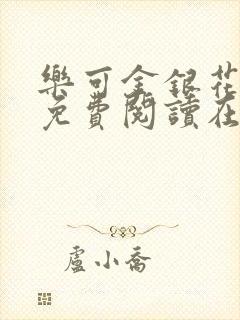 樂可金銀花
免費閱讀在
盧小喬